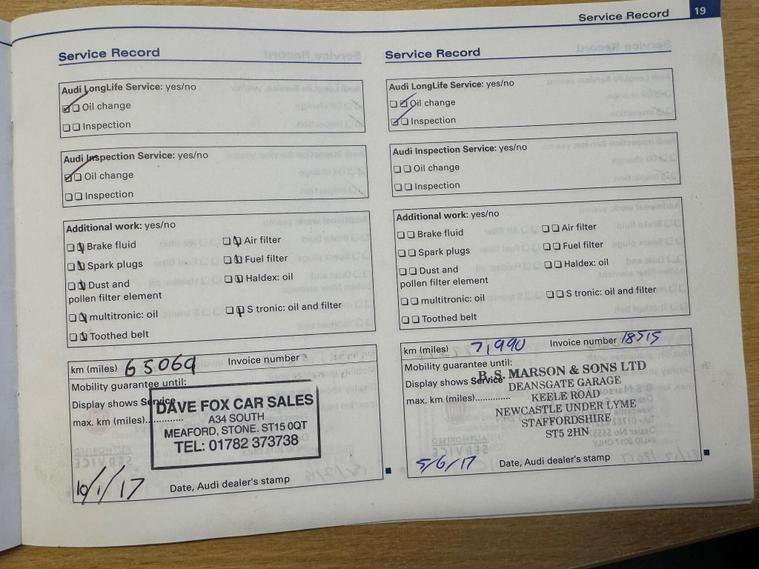 Service Record 19
Service Record
Audi LongLife Service: yes/no
Oil change
Inspection
Audi Inspection Service: yes/no
Oil change
Inspection
Additional work: yes/no
Brake fluid
Air filter
Spark plugs
Fuel filter
Dust and
pollen filter element
Haldex: oil
multitronic: oil
S tronic: oil and filter
Toothed belt
km (miles) 65069 Invoice number
Mobility guarantee until:
Display shows Service
max. km (miles)
DAVE FOX CAR SALES
A34 SOUTH
MEAFORD, STONE. ST15 0QT
TEL: 01782 373738
10/1/17 Date, Audi dealer's stamp
Service Record
Audi LongLife Service: yes/no
Oil change
Inspection
Audi Inspection Service: yes/no
Oil change
Inspection
Additional work: yes/no
Brake fluid
Air filter
Spark plugs
Fuel filter
Dust and
pollen filter element
Haldex: oil
multitronic: oil
S tronic: oil and filter
Toothed belt
km (miles) 71,990 Invoice number 18515
Mobility guarantee until:
Display shows Service
max. km (miles)
R. S. MARSON & SONS LTD
DEANSGATE GARAGE
KEELE ROAD
NEWCASTLE UNDER LYME
STAFFORDSHIRE
ST5 2HN
5/6/17 Date, Audi dealer's stamp